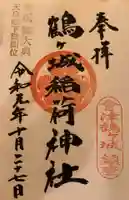 奉拝
鶴ヶ城稲荷神社
令和元年十月二十七日
会津鶴ヶ城鎮守